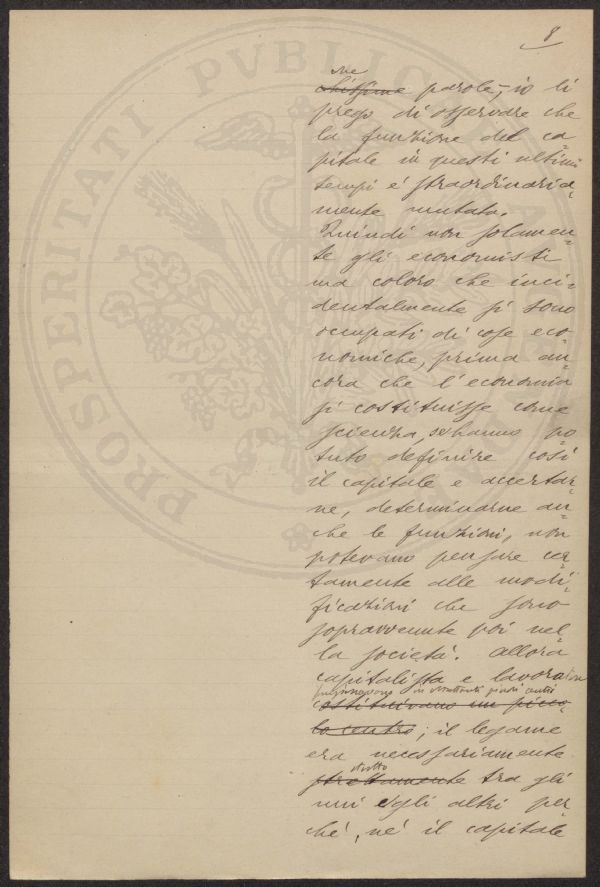 8
me
chissime parole, io li
prego di osservare che
la funzione del ca=
pitale in questi ultimi
tempi e' straordinaria=
mente mutata.
Quindi non solamen=
te gli economisti
ma coloro che inci=
dentalmente si sono
occupati di cose eco=
nomiche, prima an=
cora che l'economia
si costituisse come
scienza, se hanno po=
tuto definire così
il capitale e accertar=
ne, determinarne an=
che le funzioni, non
potevano pensare cer=
tamente alle modi=
ficazioni che sono
sopravvenute poi nel=
la società. Allora
capitalista e lavoratori
in ristretti piccoli centri
costituivano un picco=
lo centro; il legame
era necessariamente
stretto
strettamente tra gli
uni e gli altri per=
ché, né il capitale
PROSPERITATI PVBLIC